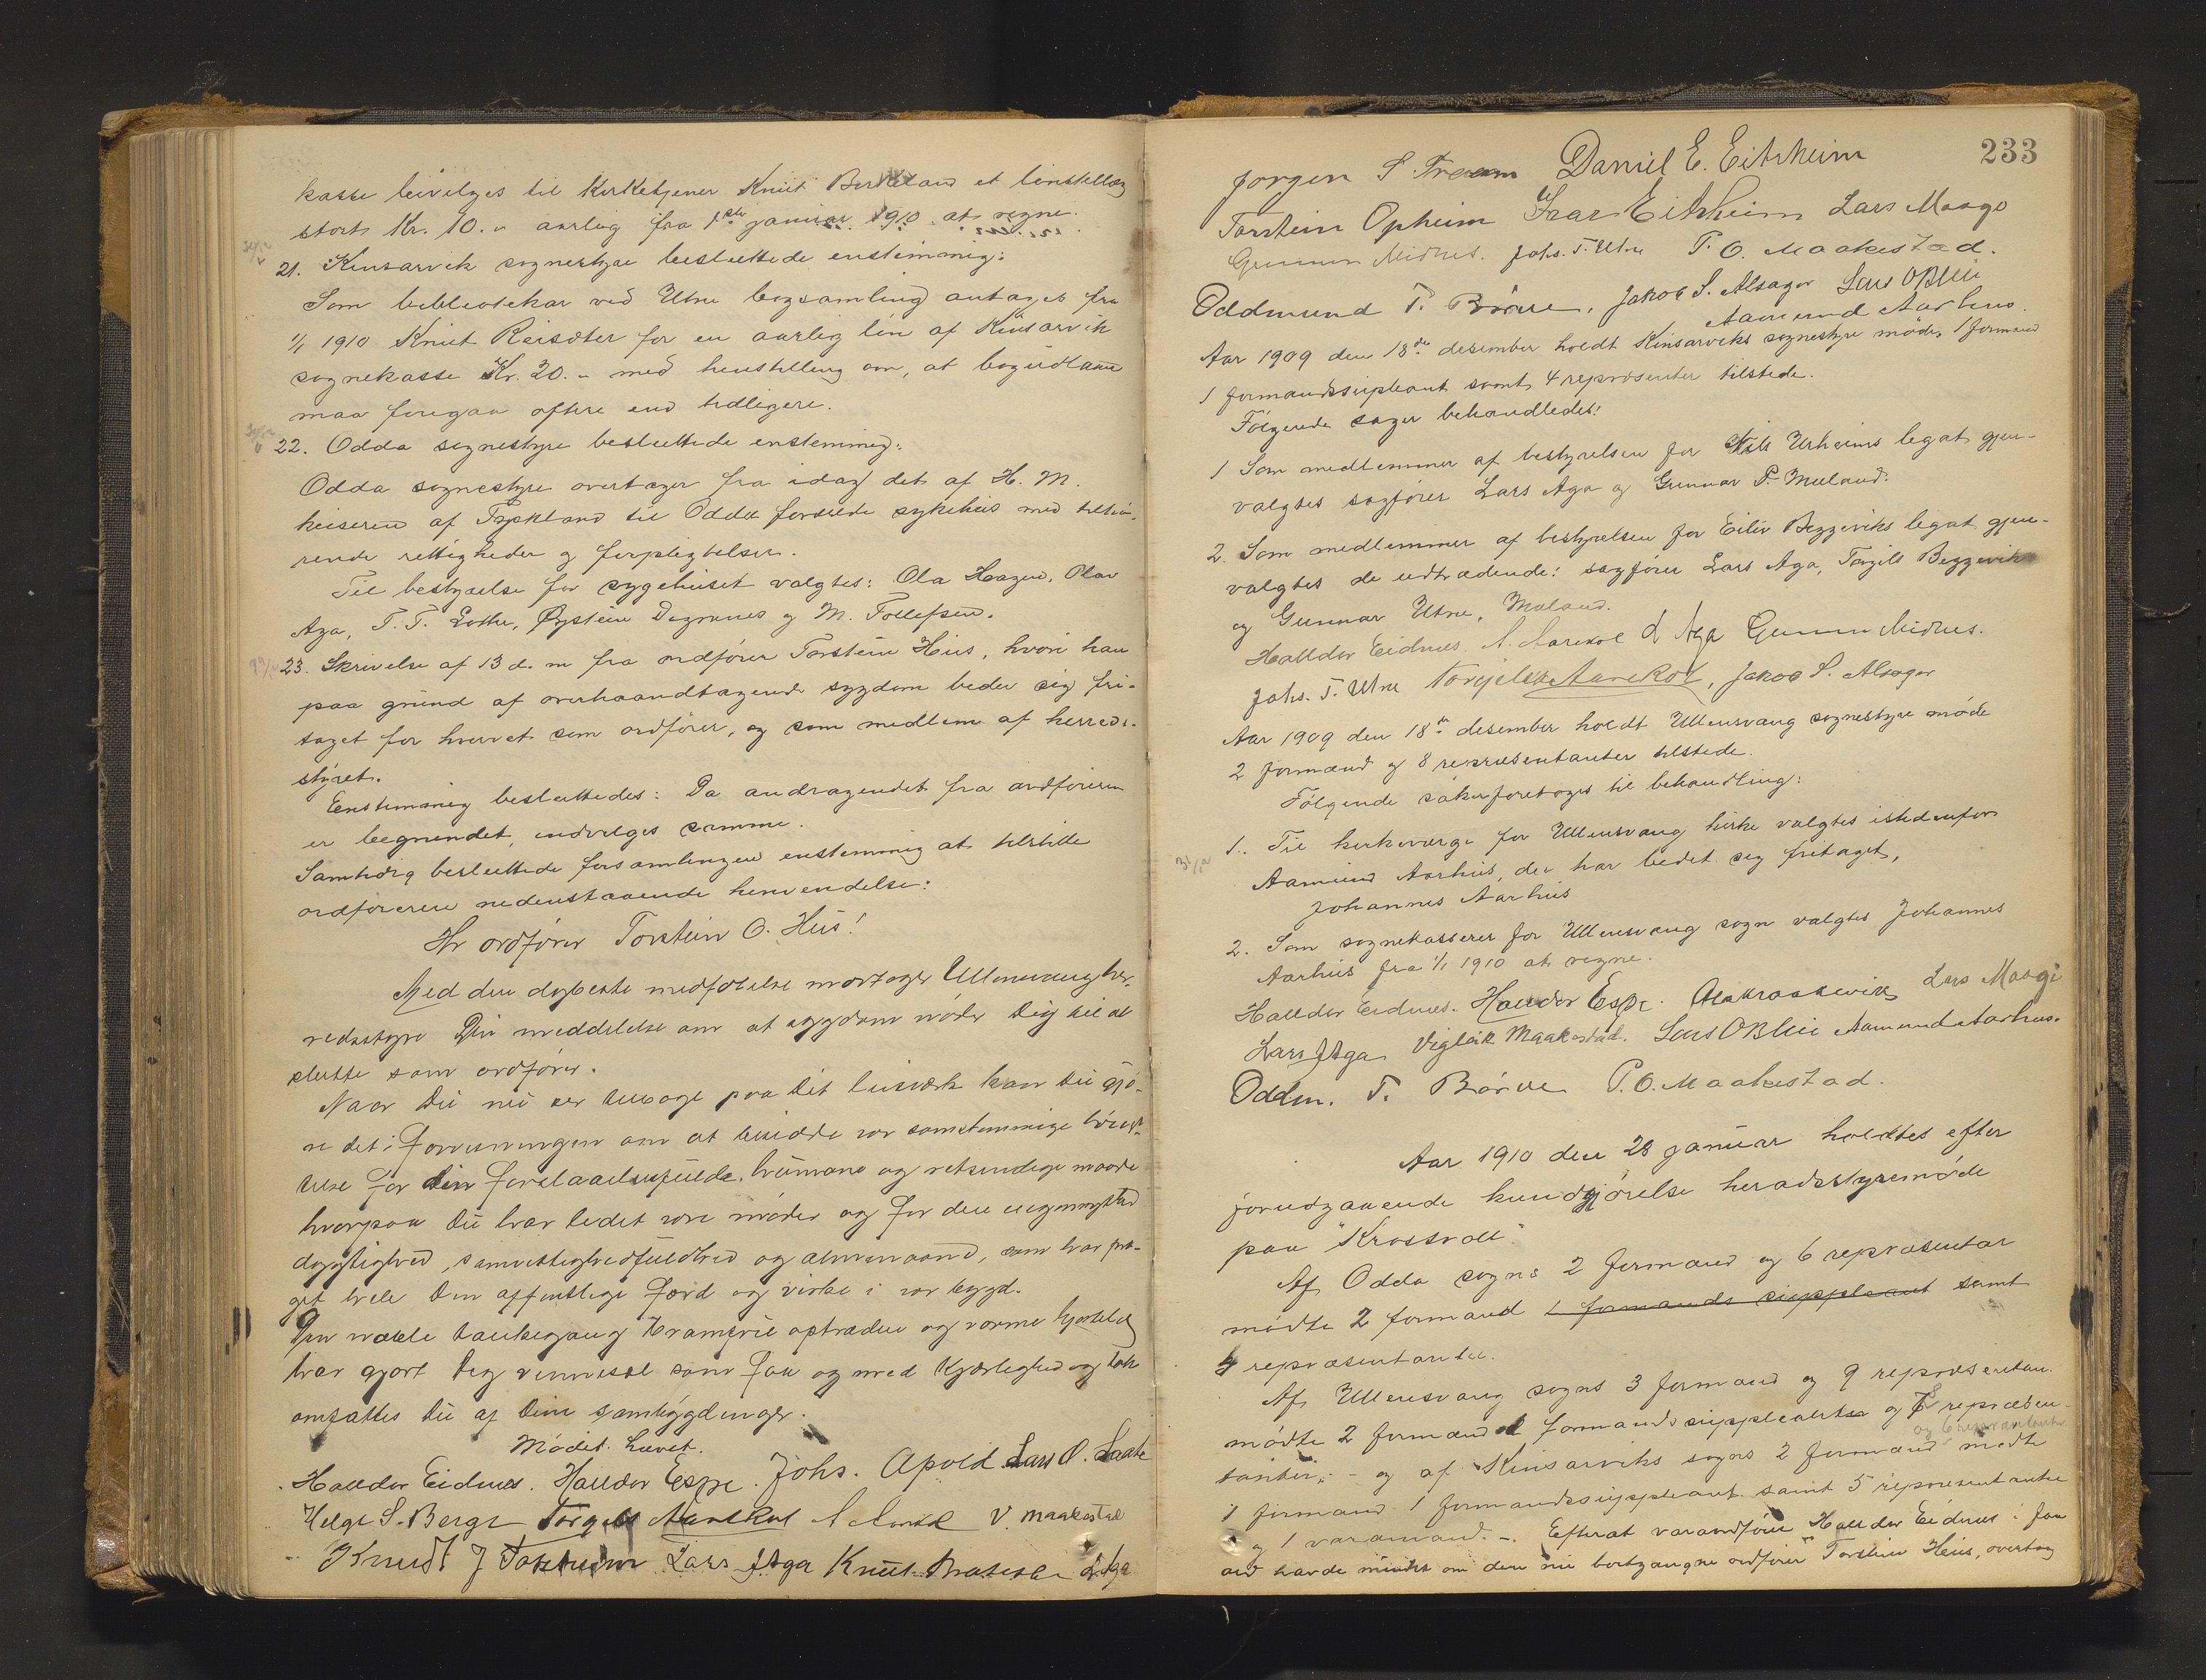 kasse bevilges til Kirketjener Knut Berkeland et löntillæg
stort Kr. 10.- aarlig fra 1ste januar 1910 at regne.
21. Kinsarvik sognestyre besluttede enstemmig:
Som bibliotekar ved Utne bogsamling antages fra
1/1 1910 Knut Reisæter for en aarlig lön af Kinsarvik
sognekasse Kr. 20.- med henstilling om, at bogudlaan
maa foregaa oftere end tidligere.
22. Odda sognestyre besluttede enstemmig:
Odda sognestyre overtager fra idag det af H. M.
keiseren af Tyskland til Odda forærede sykehus med tilhö-
rende rettigheder og forpligtelser.
Til bestyrelse for sygehuset valgtes: Ola Hagen, Olav
Aga, T. T. Lothe, Øystein Dagranes og M. Tollefsen.
23. Skrivelse af 13 d. m fra ordförer Torstein Hus, hvori han
paa grund af overhaandtagende sygdom beder sig fri-
taget for hvervet som ordförer, og som medlem af herreds-
styret.
Eenstemmig besluttedes: Da andragendet fra ordföreren
er begrundet, indvilges samme.
Samtidig besluttede forsamlingen enstemmig at tilstille
ordföreren nedenstaaende henvendelse:
Hr ordförer Torstein O. Hus!
Med den dybeste medfölelse mottager Ullensvang her-
redsstyre Din meddelelse om at sygdom nöder Dig til at
slutte som ordförer.
Naar Du nu ser tilbage paa Dit livsværk kan Du gjö-
re det i forvisningen om at besidde vor samstemmige
for Din forstaaelsesfulde, humane og retsindige maade
hvorpaa Du har ledet vore möder og for den uegennyttid
dygtighed, samvittighedsfuldhed og almenaand, som har præ-
get hele Din offentlige færd og virke i vor bygd.
Din tankegang optræden og varme hjertelag
har gjort Deg vennesæl som faa og med Kjærlighed og tak
omfattes Du af Dine sambygdinger.
Mödet hævet.
Halldor Eidnes. Halldor Espe. Johs. Apold Lars O.
Helge S. Berge Torgils Aarekol V. Maakestad
Knudt J Tokheim Lars J Aga Knut L Aga
233
Jörgen S. Daniel E. Eitrheim
Torstein Opheim Eitrheim Lars Maage
Gunnar Midnes. Johs. T. Utne P. O. Maakestad.
Oddmund T. Börve, Jakob S. Alsager Lars O Bleie
Aamund Aarhus.
Aar 1909 den 18de desember holdt Kinsarviks sognestyre möde, 1 formand
1 formandssupleant samt 4 repræsenter tilstede.
Fölgende sager behandledes:
1 Som medlemmer af bestyrelsen for Nils Urheims legat gjen-
valgtes sagförer Lars Aga og Gunnar P. Mæland.
2. Som medlemmer af bestyrelsen for Eiliv Beggeviks legat gjen-
valgtes de udtrædende: sagförer Lars Aga, Torgils Beggevik
og Gunnar Utne, Mæland.
Halldor Eidnes A. Aarekol L Aga Gunnar Midnes.
Johs. T. Utne Torgils Aarekol, Jakob S. Alsager
Aar 1909 den 18de desember holdt Ullensvang sognestyre möde
2 formænd og 8 repræsentanter tilstede.
Fölgende saker foretoges til behandling:
1. Til kirkeværge for Ullensvang kirke valgtes istedenfor
Aamund Aarhus, der har bedet sig fritaget,
Johannes Aarhus
2. Som sognekasserer for Ullensvang sogn valgtes Johannes
Aarhus fra 1/1 1910 at regne.
Halldor Eidnes. Halldor Espe. Lars Maage
Lars J Aga Vigleik Maakestad. Lars O Bleie Aamund Aarhus.
Oddm. T. Börve P. O. Maakestad.
Aar 1910 den 28 januar holdtes efter
forudgaaende kundgjörelse heradsstyremöde
paa "Krossvoll".
Af Odda sogns 2 formænd og 6 repræsentar
mödte 2 formænd 1 formands suppleant samt
4 repræsentanter.
Af Ullensvang sogns 3 formænd og 9 repræsentan.
mödte 2 formænd 1 formandssuppleant og 8 repræsen-
tanter; - og af Kinsarviks sogns 2 formænd og 6 repræsentanter mödte
1 formand 1 formandssuppleant samt 5 repræsentanter
og 1 varamand. -. Efterat varaordförer Halldor Eidnes i faa
ord havde mindet om den nu bortgangne ordförer Torstein Hus, overtog